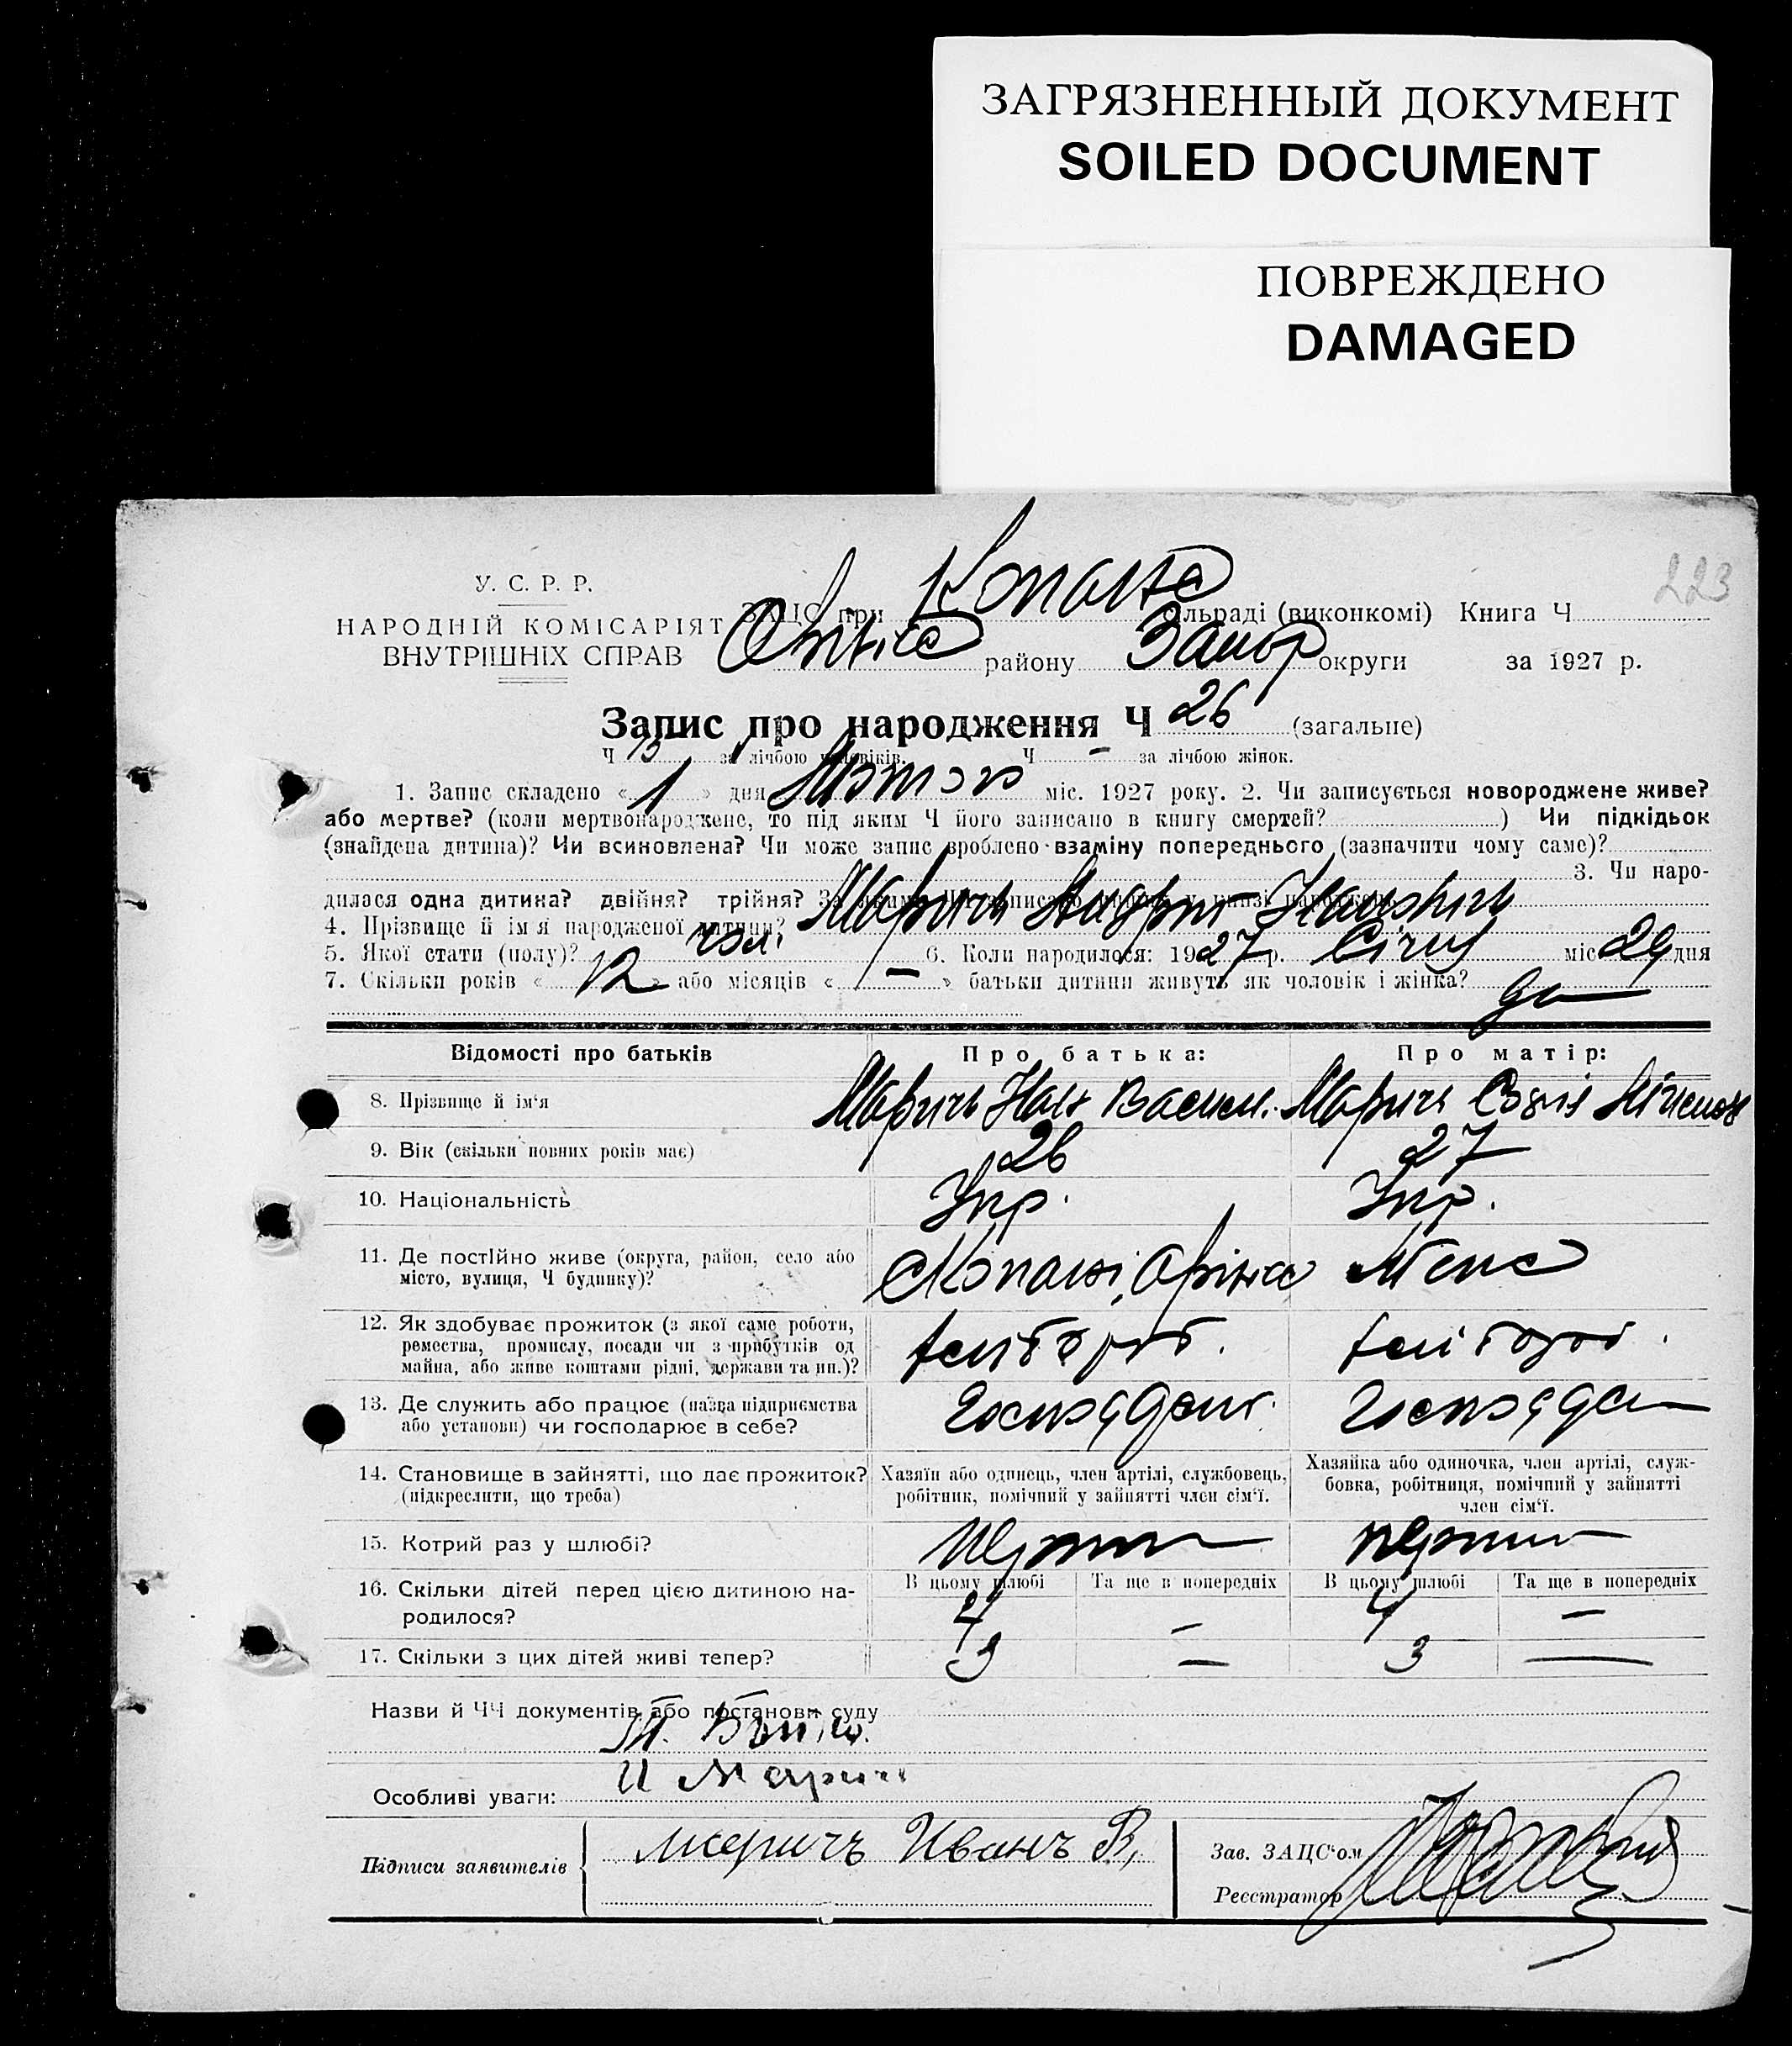 ЗАГРЯЗНЕННЫЙ ДОКУМЕНТ
SOILED DOCUMENT
ПОВРЕЖДЕНО
DAMAGED
223
У. С. Р. Р.
НАРОДНІЙ КОМІСАРІЯТ
ВНУТРІШНІХ СПРАВ
ЗАЦС при сільраді (виконкомі) Книга Ч
району Запор округи за 1927 р.
Запис про народження Ч 26 (загальне)
Ч 13 за лічбою чоловіків. Ч — за лічбою жінок.
1. Запис складено « 1 » дня Лютого міс. 1927 року. 2. Чи записується новороджене живе?
або мертве? (коли мертвонароджене, то під яким Ч його записано в книгу смертей? ) Чи підкідьок
(знайдена дитина)? Чи всиновлена? Чи може запис зроблено взаміну попереднього (зазначити чому саме)?
3. Чи наро-
дилася одна дитина? двійня? трійня? За яким Ч записано в книзі народжень
4. Прізвище й ім'я народженої дитини? Маричъ Андрій Іванович
5. Якої стати (полу)? чол. 6. Коли народилося: 1927 р. Січня міс 29 дня
7. Скільки років « 12 » або місяців « — » батьки дитини живуть як чоловік і жінка? да
Відомості про батьків Про батька: Про матір:
8. Прізвище й ім'я Маричъ Іван Васил. Марич Софія
9. Вік (скільки повних років має) 26 27
10. Національність Укр. Укр.
11. Де постійно живе (округа, район, село або
місто, вулиця, Ч будинку)?
12. Як здобуває прожиток (з якої саме роботи,
ремества, промислу, посади чи з прибутків од
майна, або живе коштами рідні, держави та ин.)?
13. Де служить або працює (назва підприємства
або установи) чи господарює в себе?
14. Становище в зайнятті, що дає прожиток? Хазяїн або одинець, член артілі, службовець, Хазяйка або одиночка, член артілі, служ-
(підкреслити, що треба) робітник, помічний у зайнятті член сім'ї. бовка, робітниця, помічний у зайнятті
член сім'ї.
15. Котрий раз у шлюбі? перший перший
16. Скільки дітей перед цією дитиною на- В цьому шлюбі Та ще в попередніх В цьому шлюбі Та ще в попередніх
родилося? 4 — 4 —
17. Скільки з цих дітей живі тепер? 3 — 3 —
Назви й ЧЧ документів або постанови суду
И Марич
Особливі уваги:
Підписи заявителів Маричъ Иванъ В,
Зав. ЗАЦС'ом
Реєстратор